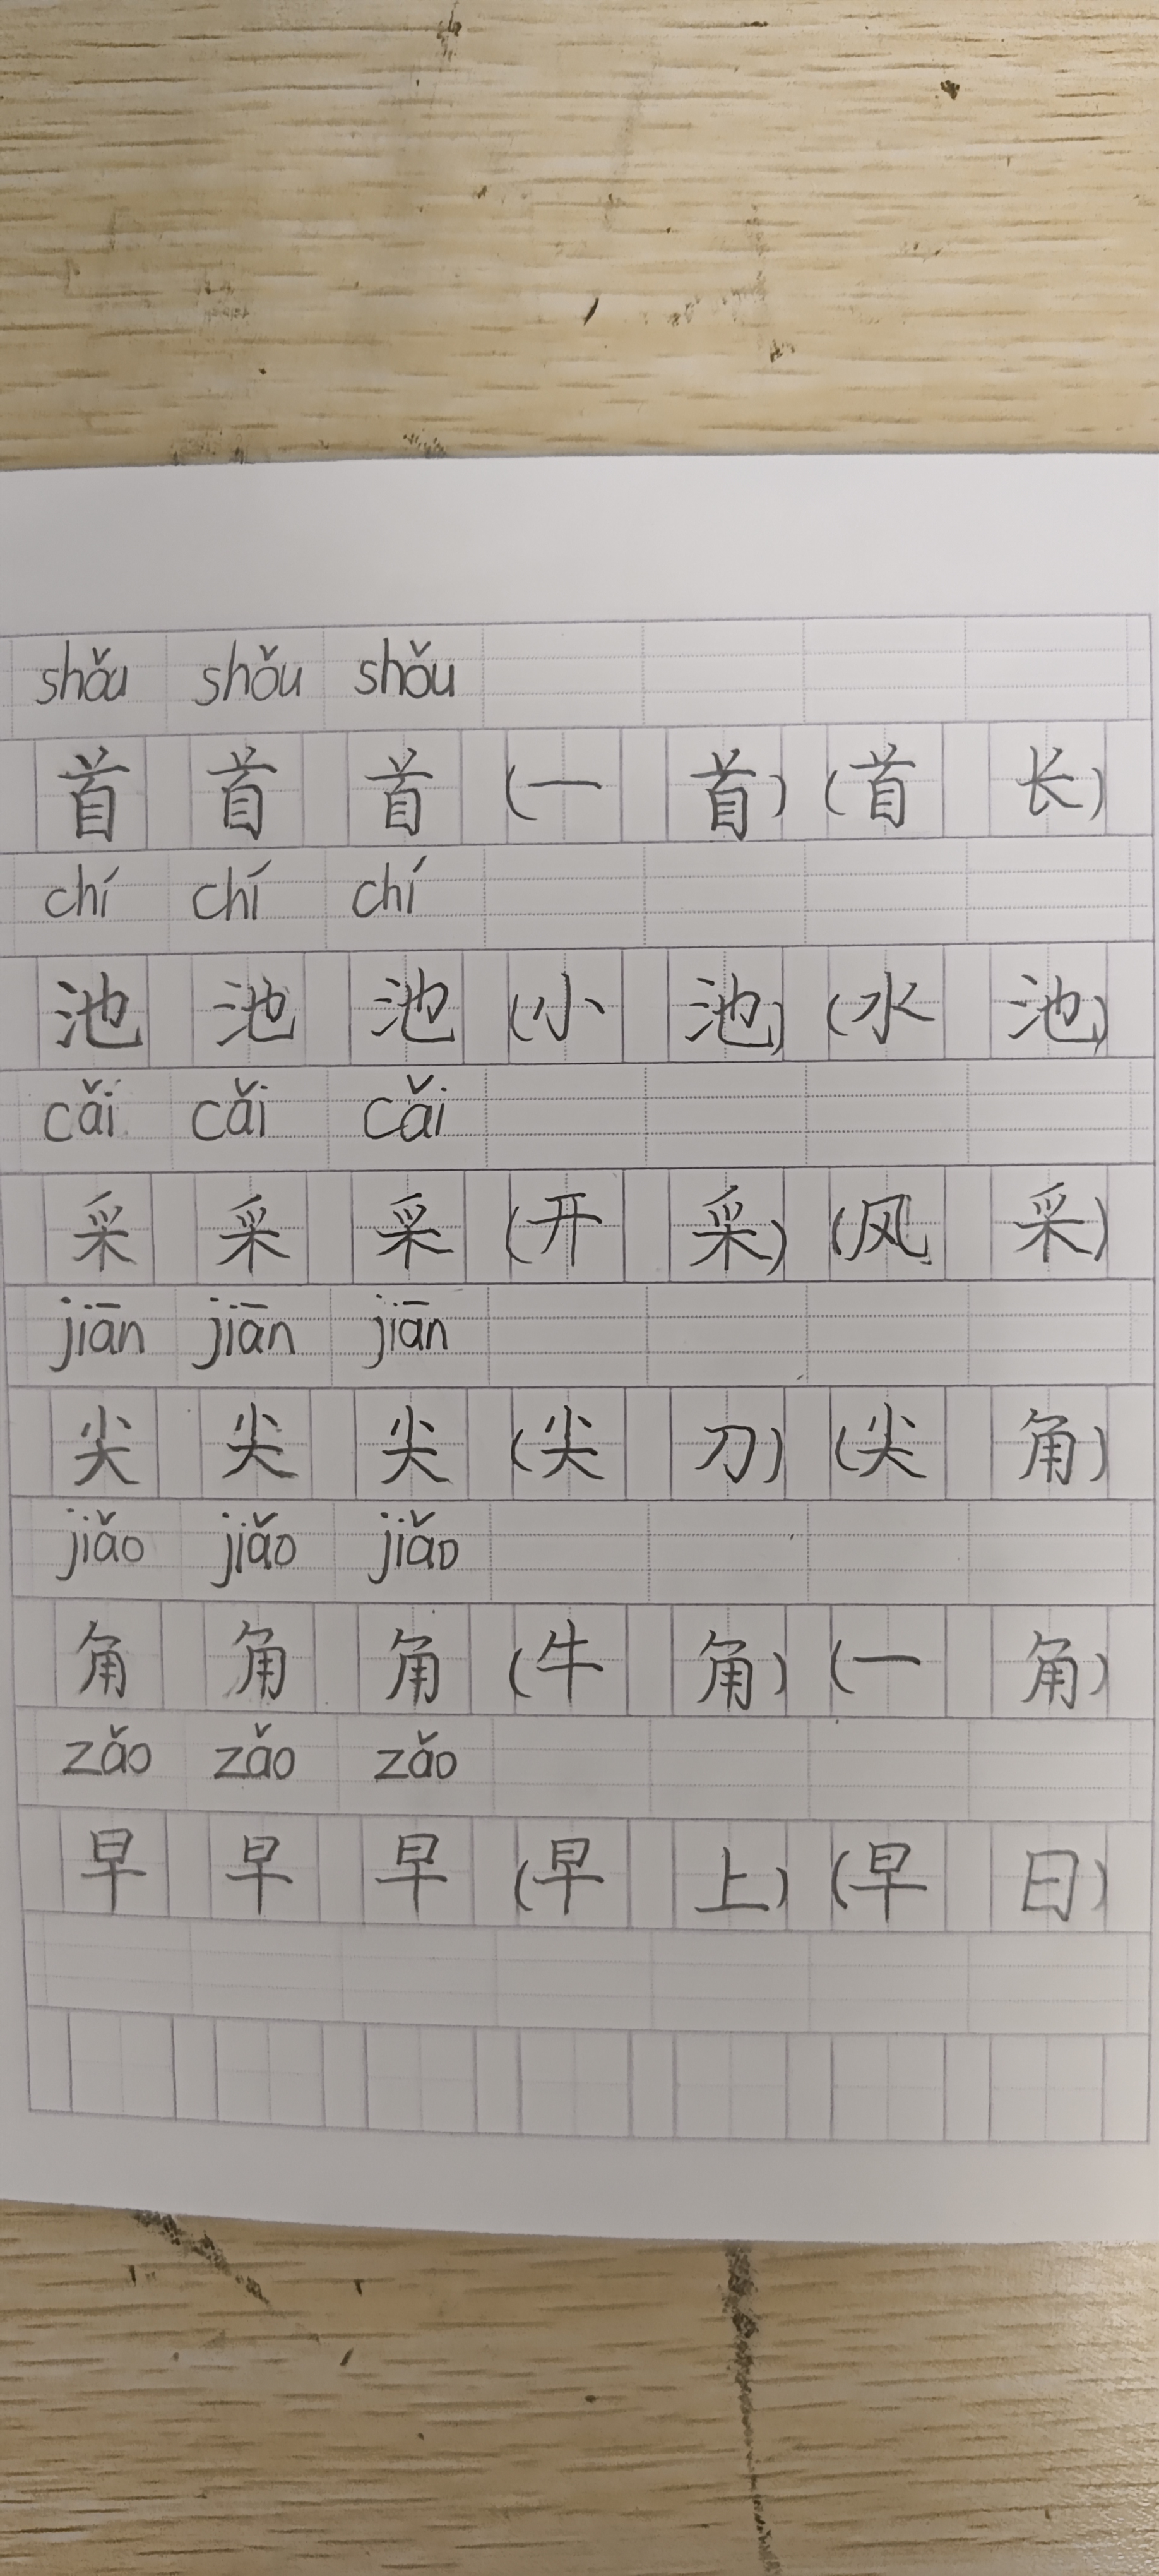 shǒu shǒu shǒu
首 首 首 (一 首) (首 长)
chí chí chí
池 池 池 (小 池) (水 池)
cǎi cǎi cǎi
采 采 采 (开 采) (风 采)
jiān jiān jiān
尖 尖 尖 (尖 刀) (尖 角)
jiǎo jiǎo jiǎo
角 角 角 (牛 角) (一 角)
zǎo zǎo zǎo
早 早 早 (早 上) (早 日)